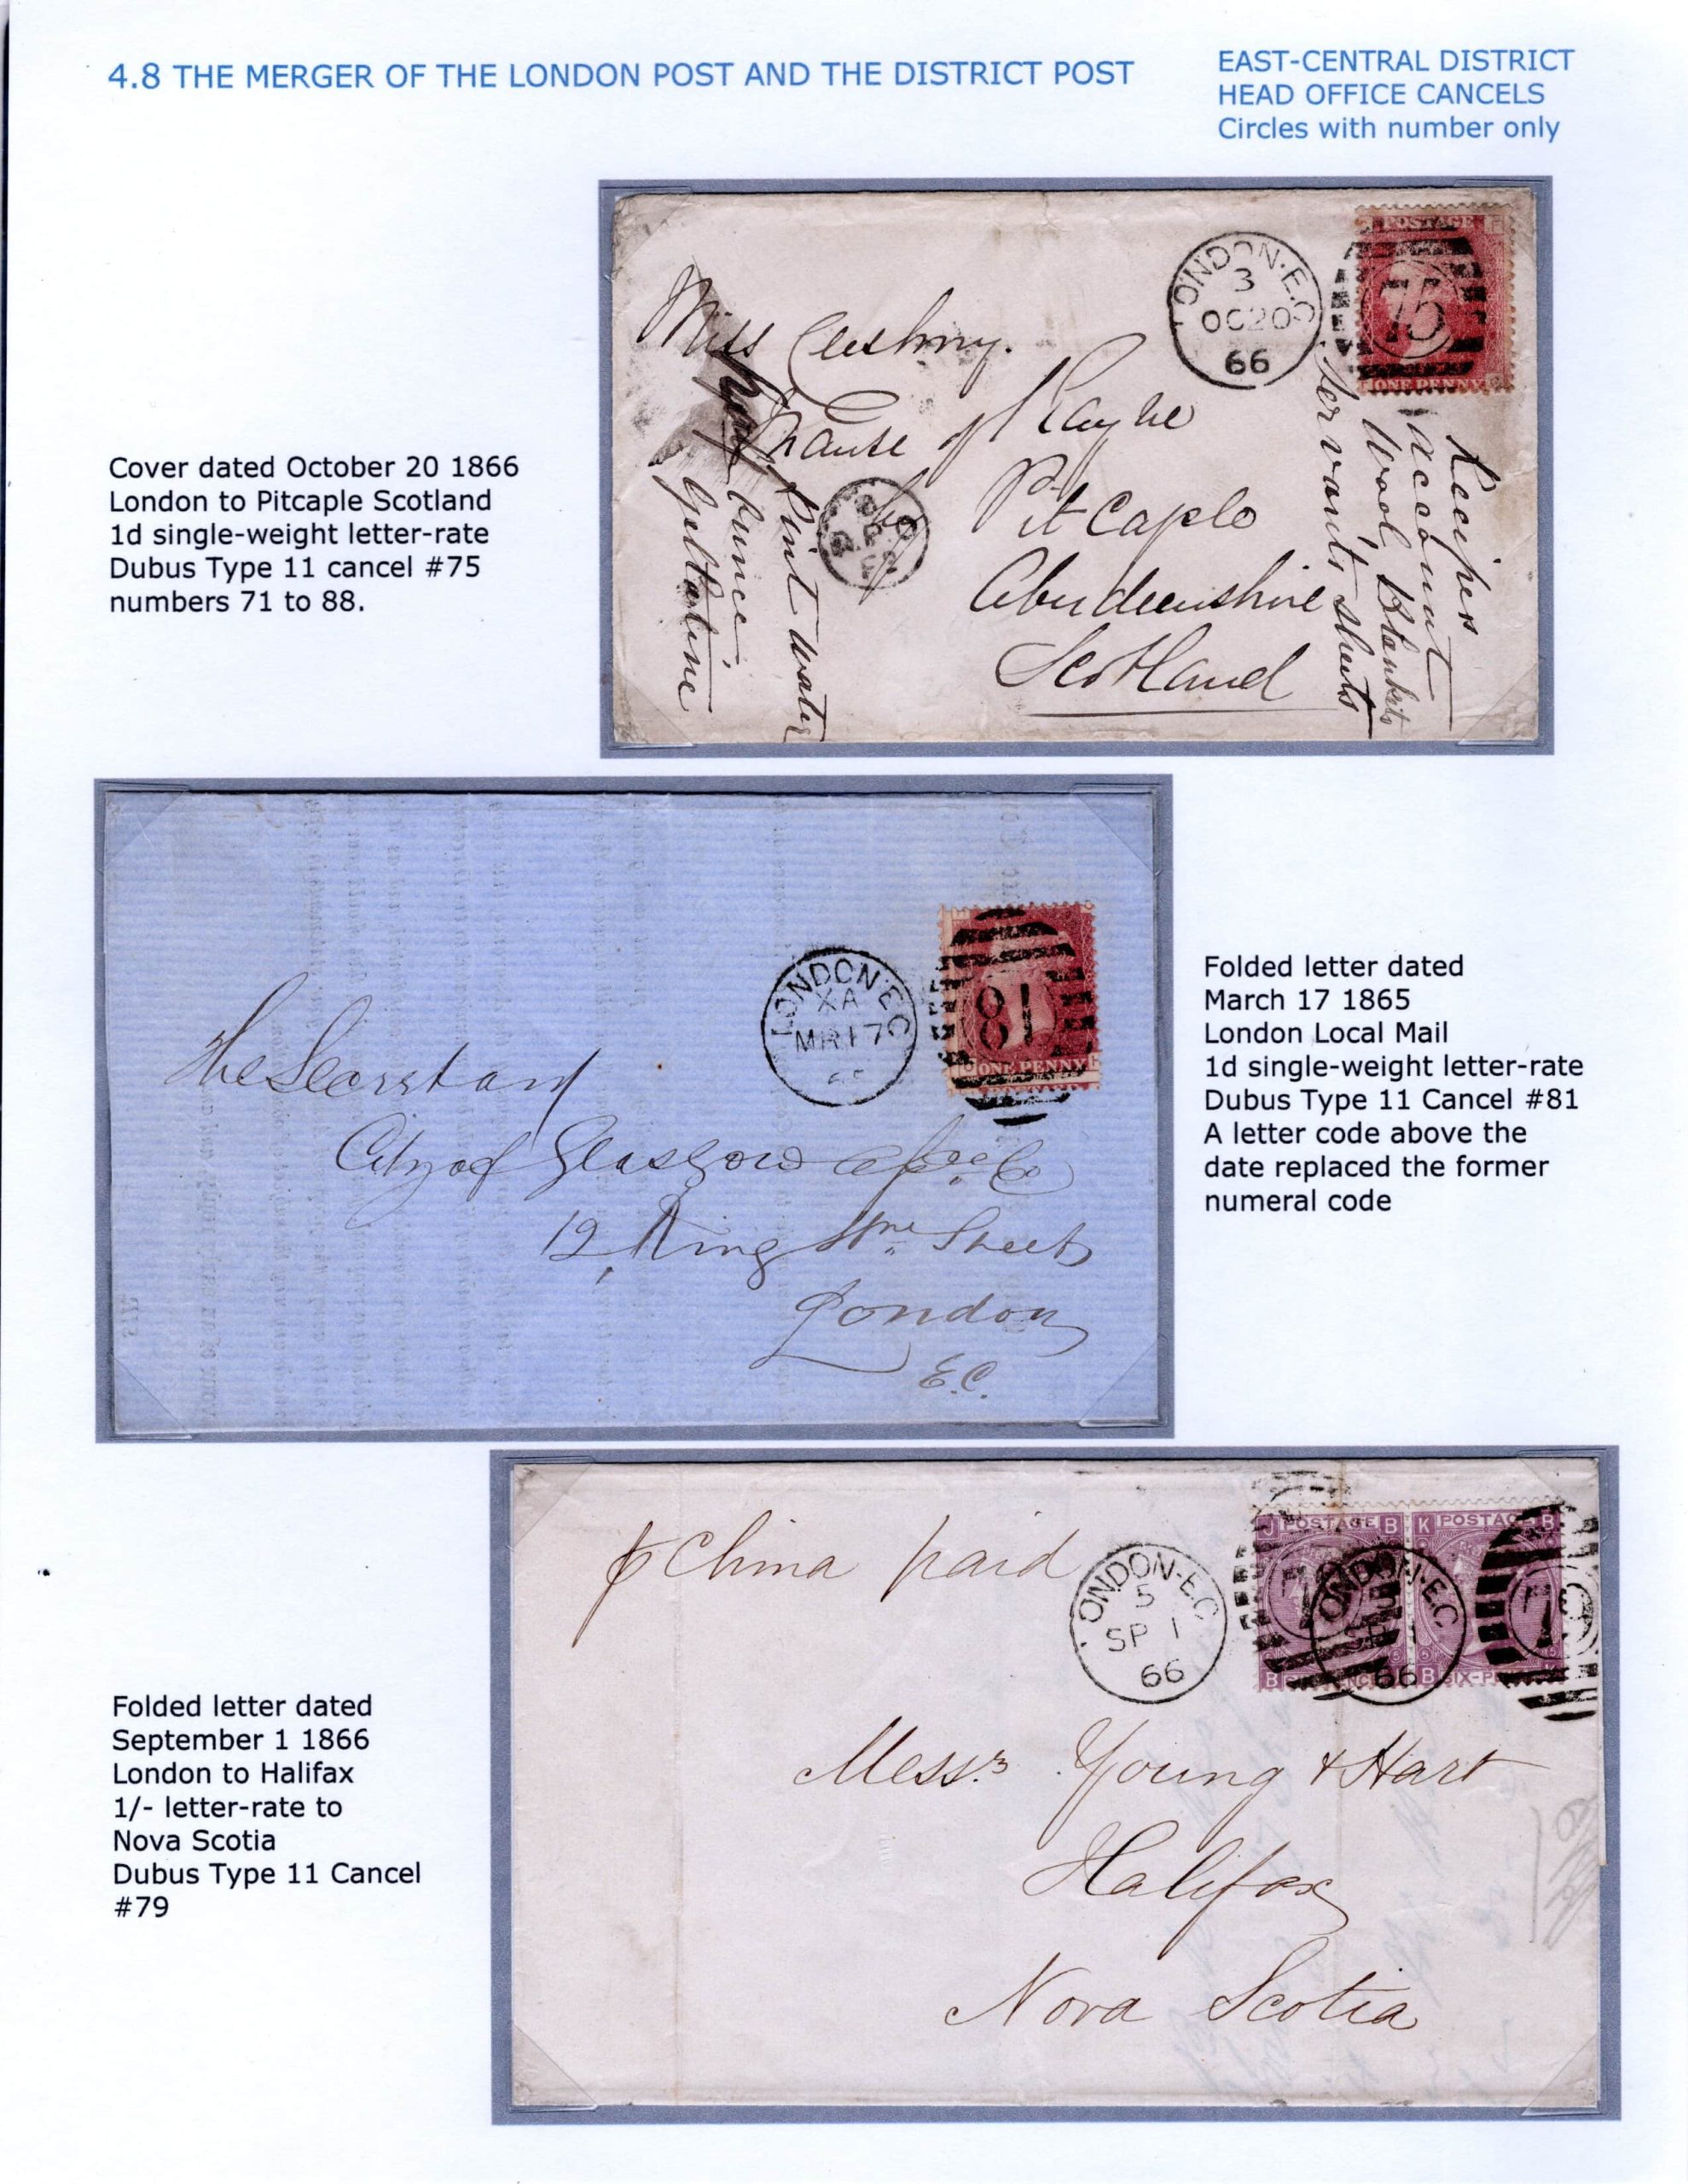 4.8 THE MERGER OF THE LONDON POST AND THE DISTRICT POST
EAST-CENTRAL DISTRICT
HEAD OFFICE CANCELS
Circles with number only
Cover dated October 20 1866
London to Pitcaple Scotland
1d single-weight letter-rate
Dubus Type 11 cancel #75
numbers 71 to 88.
LONDON·E.C
3
OC20
66
POSTAGE
75
ONE PENNY
Miss
of Rayne
Pitcaple
Aberdeenshire
Scotland
Recipes
account
Wool, Blankets
Servants, sheets
Pint water
Gellatine
Folded letter dated
March 17 1865
London Local Mail
1d single-weight letter-rate
Dubus Type 11 Cancel #81
A letter code above the
date replaced the former
numeral code
LONDON·E.C
XA
MR17
81
ONE PENNY
The Secretary
City of Glasgow
12, King Wm. Street
London
E.C.
Folded letter dated
September 1 1866
London to Halifax
1/- letter-rate to
Nova Scotia
Dubus Type 11 Cancel
#79
p China paid
LONDON·E.C
5
SP 1
66
J POSTAGE B
K POSTAGE B
Messrs. Young & Hart
Halifax
Nova Scotia